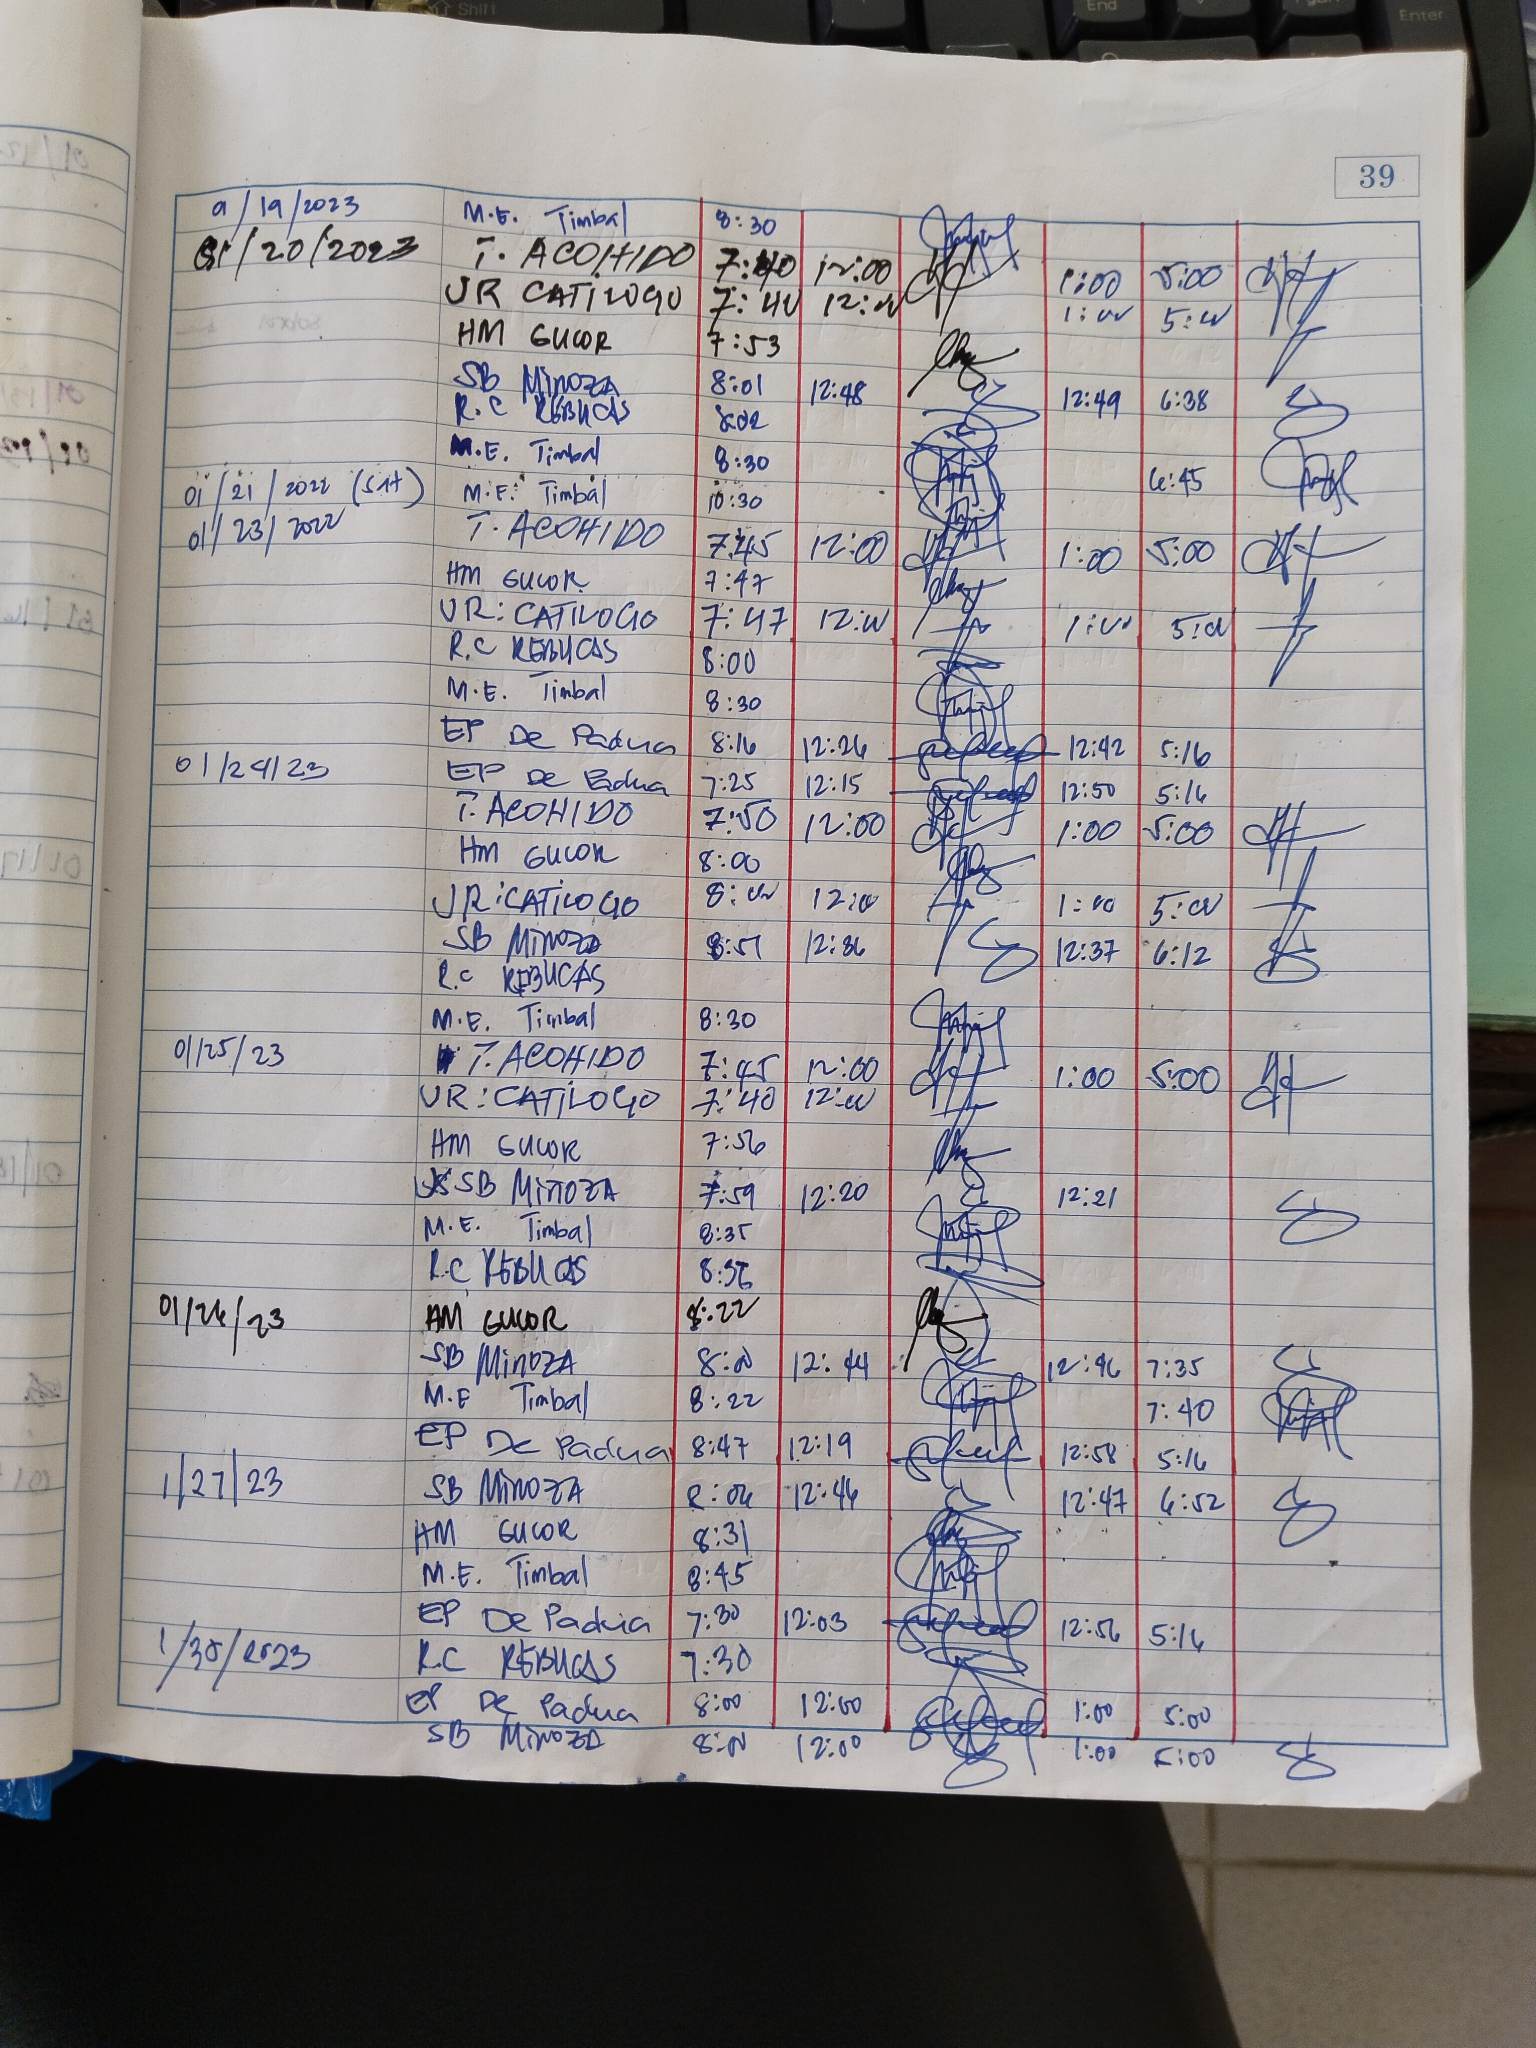 39
01/19/2023 M.E. Timbal 8:30
01/20/2023 T. ACOHIDO 7:40 12:00 1:00 5:00
JR CATILOGO 7:40 12:00 1:00 5:00
HM GUCOR 7:53
SB MINOZA 8:01 12:48 12:49 6:38
R.C REBUCAS 8:02
M.E. Timbal 8:30 6:45
01/21/2022 (SAT) M.E. Timbal 10:30
01/23/2022 T. ACOHIDO 7:45 12:00 1:00 5:00
HM GUCOR 7:47
JR: CATILOGO 7:47 12:00 1:00 5:00
R.C REBUCAS 8:00
M.E. Timbal 8:30
EP De Padua 8:16 12:26 12:42 5:16
01/24/23 EP De Padua 7:25 12:15 12:50 5:16
T. ACOHIDO 7:50 12:00 1:00 5:00
HM GUCOR 8:00
JR: CATILOGO 8:00 12:00 1:00 5:00
SB MINOZA 8:51 12:36 12:37 6:12
R.C REBUCAS
M.E. Timbal 8:30
01/25/23 T. ACOHIDO 7:45 12:00 1:00 5:00
JR: CATILOGO 7:40 12:00
HM GUCOR 7:56
SB MINOZA 7:59 12:20 12:21
M.E. Timbal 8:35
R.C REBUCAS 8:36
01/26/23 HM GUCOR 8:22
SB MINOZA 8:00 12:44 12:46 7:35
M.E Timbal 8:22 7:40
EP De Padua 8:47 12:19 12:58 5:16
1/27/23 SB MINOZA 8:06 12:46 12:47 6:52
HM GUCOR 8:31
M.E. Timbal 8:45
EP De Padua 7:30 12:03 12:56 5:16
1/30/2023 R.C REBUCAS 7:30
EP De Padua 8:00 12:00 1:00 5:00
SB MINOZA 8:00 12:00 1:00 5:00